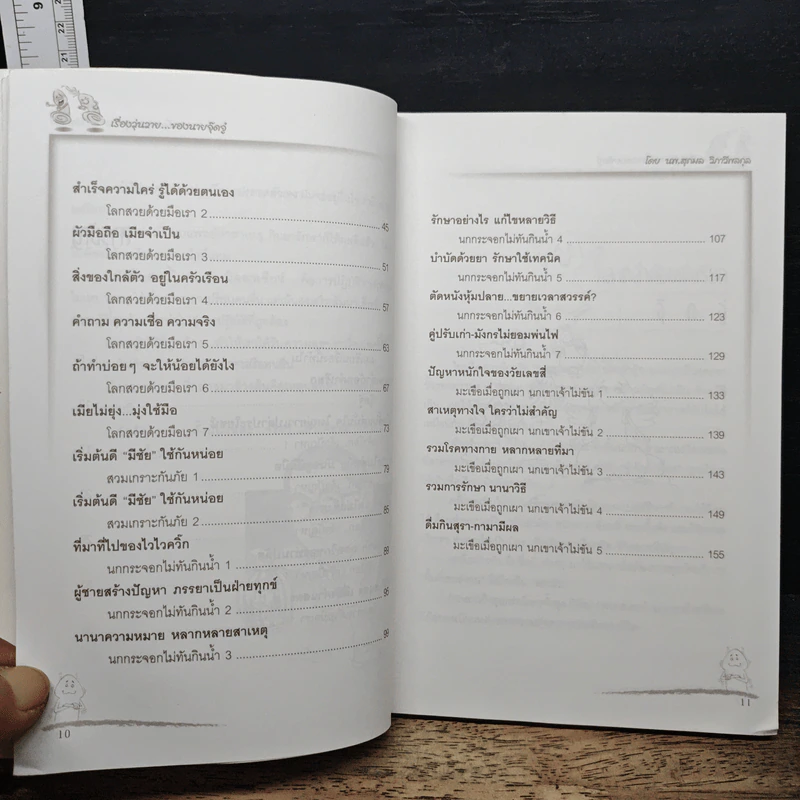 เรื่องวุ่นวาย...ของนายจุ๊ดจู๋
สำเร็จความใคร่ รู้ได้ด้วยตนเอง
โลกสวยด้วยมือเรา 2 45
ผัวมือถือ เมียจำเป็น
โลกสวยด้วยมือเรา 3 51
สิ่งของใกล้ตัว อยู่ในครัวเรือน
โลกสวยด้วยมือเรา 4 57
คำถาม ความเชื่อ ความจริง
โลกสวยด้วยมือเรา 5 63
ถ้าทำบ่อยๆ จะให้น้อยได้ยังไง
โลกสวยด้วยมือเรา 6 67
เมียไม่ยุ่ง...มุ่งใช้มือ
โลกสวยด้วยมือเรา 7 73
เริ่มต้นดี "มีชัย" ใช้กันหน่อย
สวมเกราะกันภัย 1 79
เริ่มต้นดี "มีชัย" ใช้กันหน่อย
สวมเกราะกันภัย 2 85
ที่มาที่ไปของไวไวควิ๊ก
นกกระจอกไม่ทันกินน้ำ 1 89
ผู้ชายสร้างปัญหา ภรรยาเป็นฝ่ายทุกข์
นกกระจอกไม่ทันกินน้ำ 2 95
นานาความหมาย หลากหลายสาเหตุ
นกกระจอกไม่ทันกินน้ำ 3 99
10
โดย นพ.สุกมล วิภาวีพลกุล
รักษาอย่างไร แก้ไขหลายวิธี
นกกระจอกไม่ทันกินน้ำ 4 107
บำบัดด้วยยา รักษาใช้เทคนิค
นกกระจอกไม่ทันกินน้ำ 5 117
ตัดหนังหุ้มปลาย...ขยายเวลาสวรรค์?
นกกระจอกไม่ทันกินน้ำ 6 123
คู่ปรับเก่า-มังกรไม่ยอมพ่นไฟ
นกกระจอกไม่ทันกินน้ำ 7 129
ปัญหาหนักใจของวัยเลขสี่
มะเขือเมื่อถูกเผา นกเขาเจ้าไม่ขัน 1 133
สาเหตุทางใจ ใครว่าไม่สำคัญ
มะเขือเมื่อถูกเผา นกเขาเจ้าไม่ขัน 2 139
รวมโรคทางกาย หลากหลายที่มา
มะเขือเมื่อถูกเผา นกเขาเจ้าไม่ขัน 3 143
รวมการรักษา นานาวิธี
มะเขือเมื่อถูกเผา นกเขาเจ้าไม่ขัน 4 149
ดื่มกินสุรา-กามามีผล
มะเขือเมื่อถูกเผา นกเขาเจ้าไม่ขัน 5 155
11